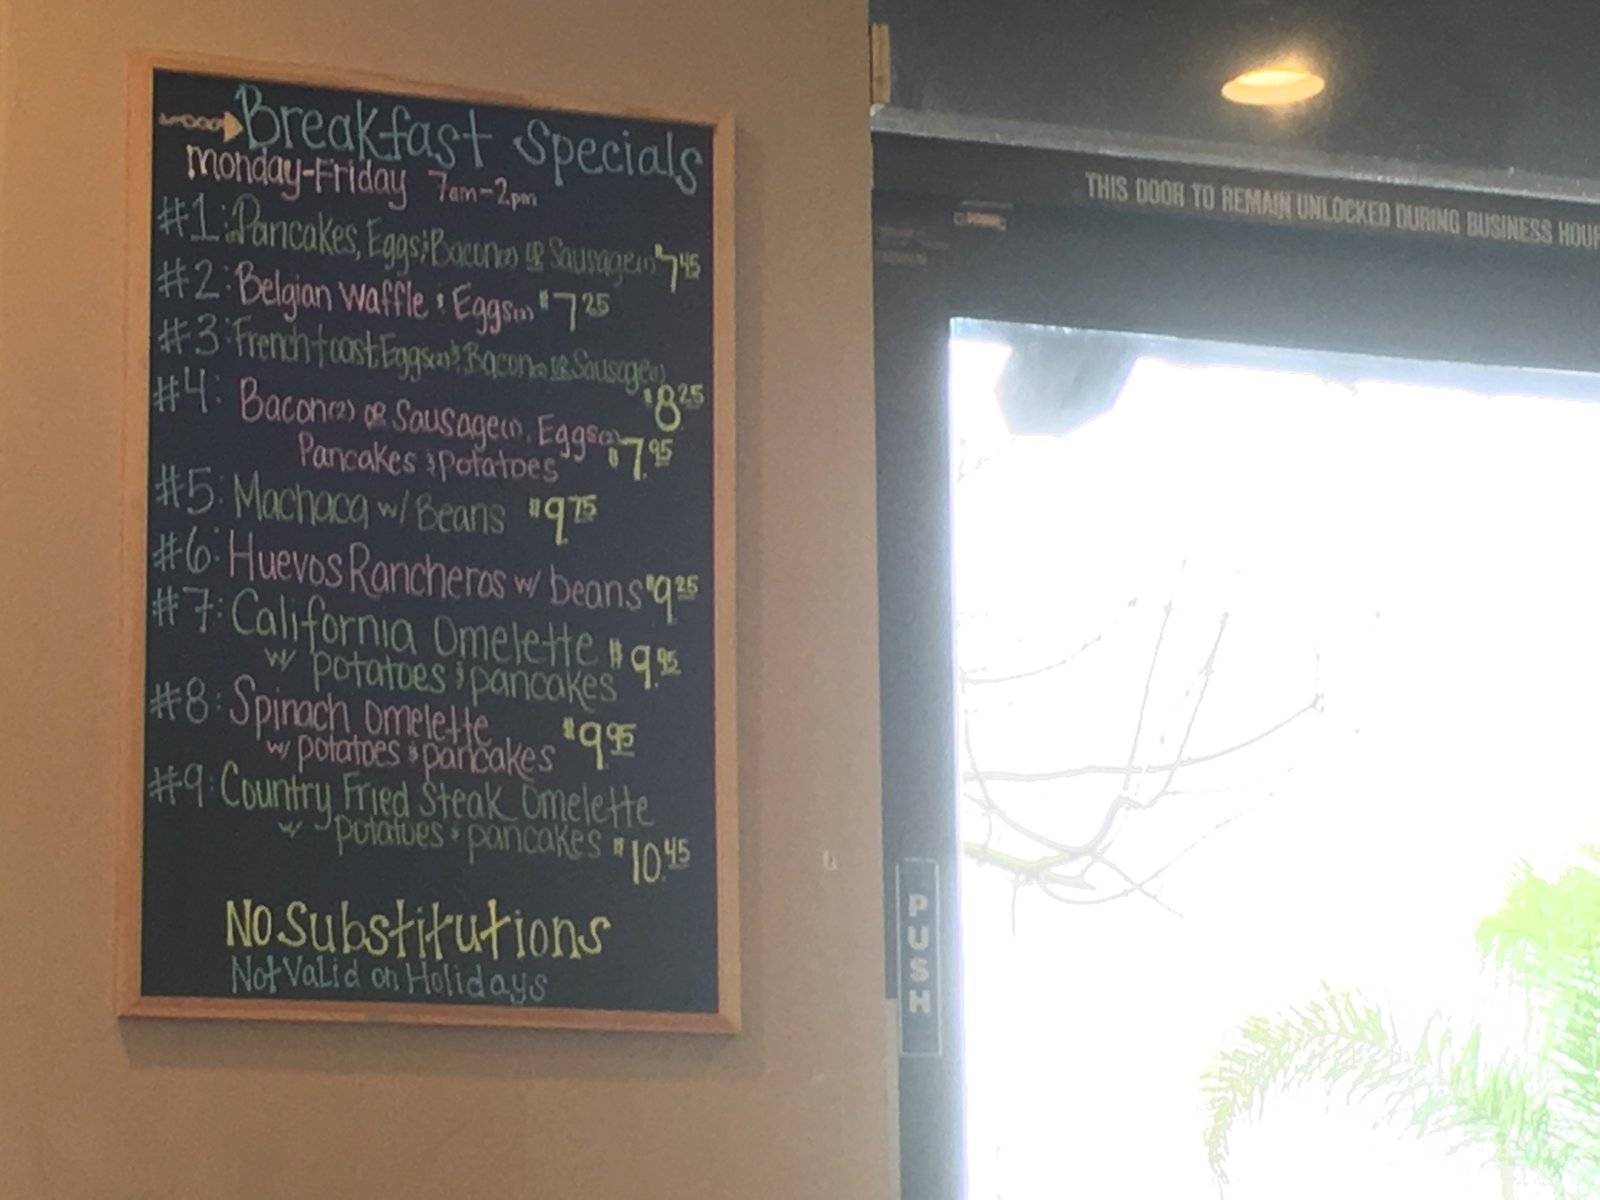 Breakfast Specials
Monday-Friday 7am-2pm
#1: Pancakes, Eggs & Bacon(2) or Sausage(1) $7.45
#2: Belgian Waffle & Eggs(2) $7.25
#3: French toast, Eggs(2) & Bacon(2) or Sausage(1)
$8.25
#4: Bacon(2) or Sausage(1), Eggs(2)
Pancakes & potatoes $7.95
#5: Machaca w/ Beans $9.75
#6: Huevos Rancheros w/ beans $9.25
#7: California Omelette $9.95
w/ potatoes & pancakes
#8: Spinach Omelette $9.95
w/ potatoes & pancakes
#9: Country Fried Steak Omelette
w/ potatoes & pancakes $10.45
No Substitutions
Not Valid on Holidays
THIS DOOR TO REMAIN UNLOCKED DURING BUSINESS HOUR
PUSH